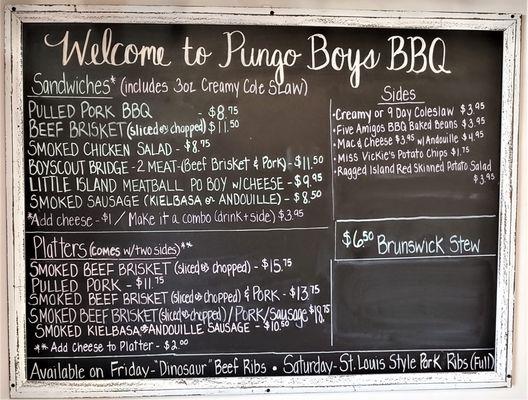 Welcome to Pungo Boys BBQ
Sandwiches* (includes 3oz Creamy Cole Slaw)
PULLED PORK BBQ - $8.75
BEEF BRISKET (sliced or chopped) - $11.50
SMOKED CHICKEN SALAD - $8.75
BOYSCOUT BRIDGE - 2 MEAT - (Beef Brisket & Pork) - $11.50
LITTLE ISLAND MEATBALL PO BOY W/CHEESE - $9.95
SMOKED SAUSAGE (KIELBASA or ANDOUILLE) - $8.50
*Add cheese - $1 / Make it a combo (drink + side) $3.95
Platters (comes w/two sides)**
SMOKED BEEF BRISKET (sliced or chopped) - $15.75
PULLED PORK - $11.75
SMOKED BEEF BRISKET (sliced or chopped) & PORK - $13.75
SMOKED BEEF BRISKET (sliced or chopped) / PORK / Sausage $18.75
SMOKED KIELBASA or ANDOUILLE SAUSAGE - $10.50
** Add Cheese to Platter - $2.00
Sides
· Creamy or 9 Day Coleslaw $3.95
· Five Amigos BBQ Baked Beans $3.95
· Mac & Cheese $3.95 w/Andouille $4.95
· Miss Vickie's Potato Chips $1.75
· Ragged Island Red Skinned Potato Salad
$3.95
$6.50 Brunswick Stew
Available on Friday - "Dinosaur" Beef Ribs • Saturday - St. Louis Style Pork Ribs (Full)